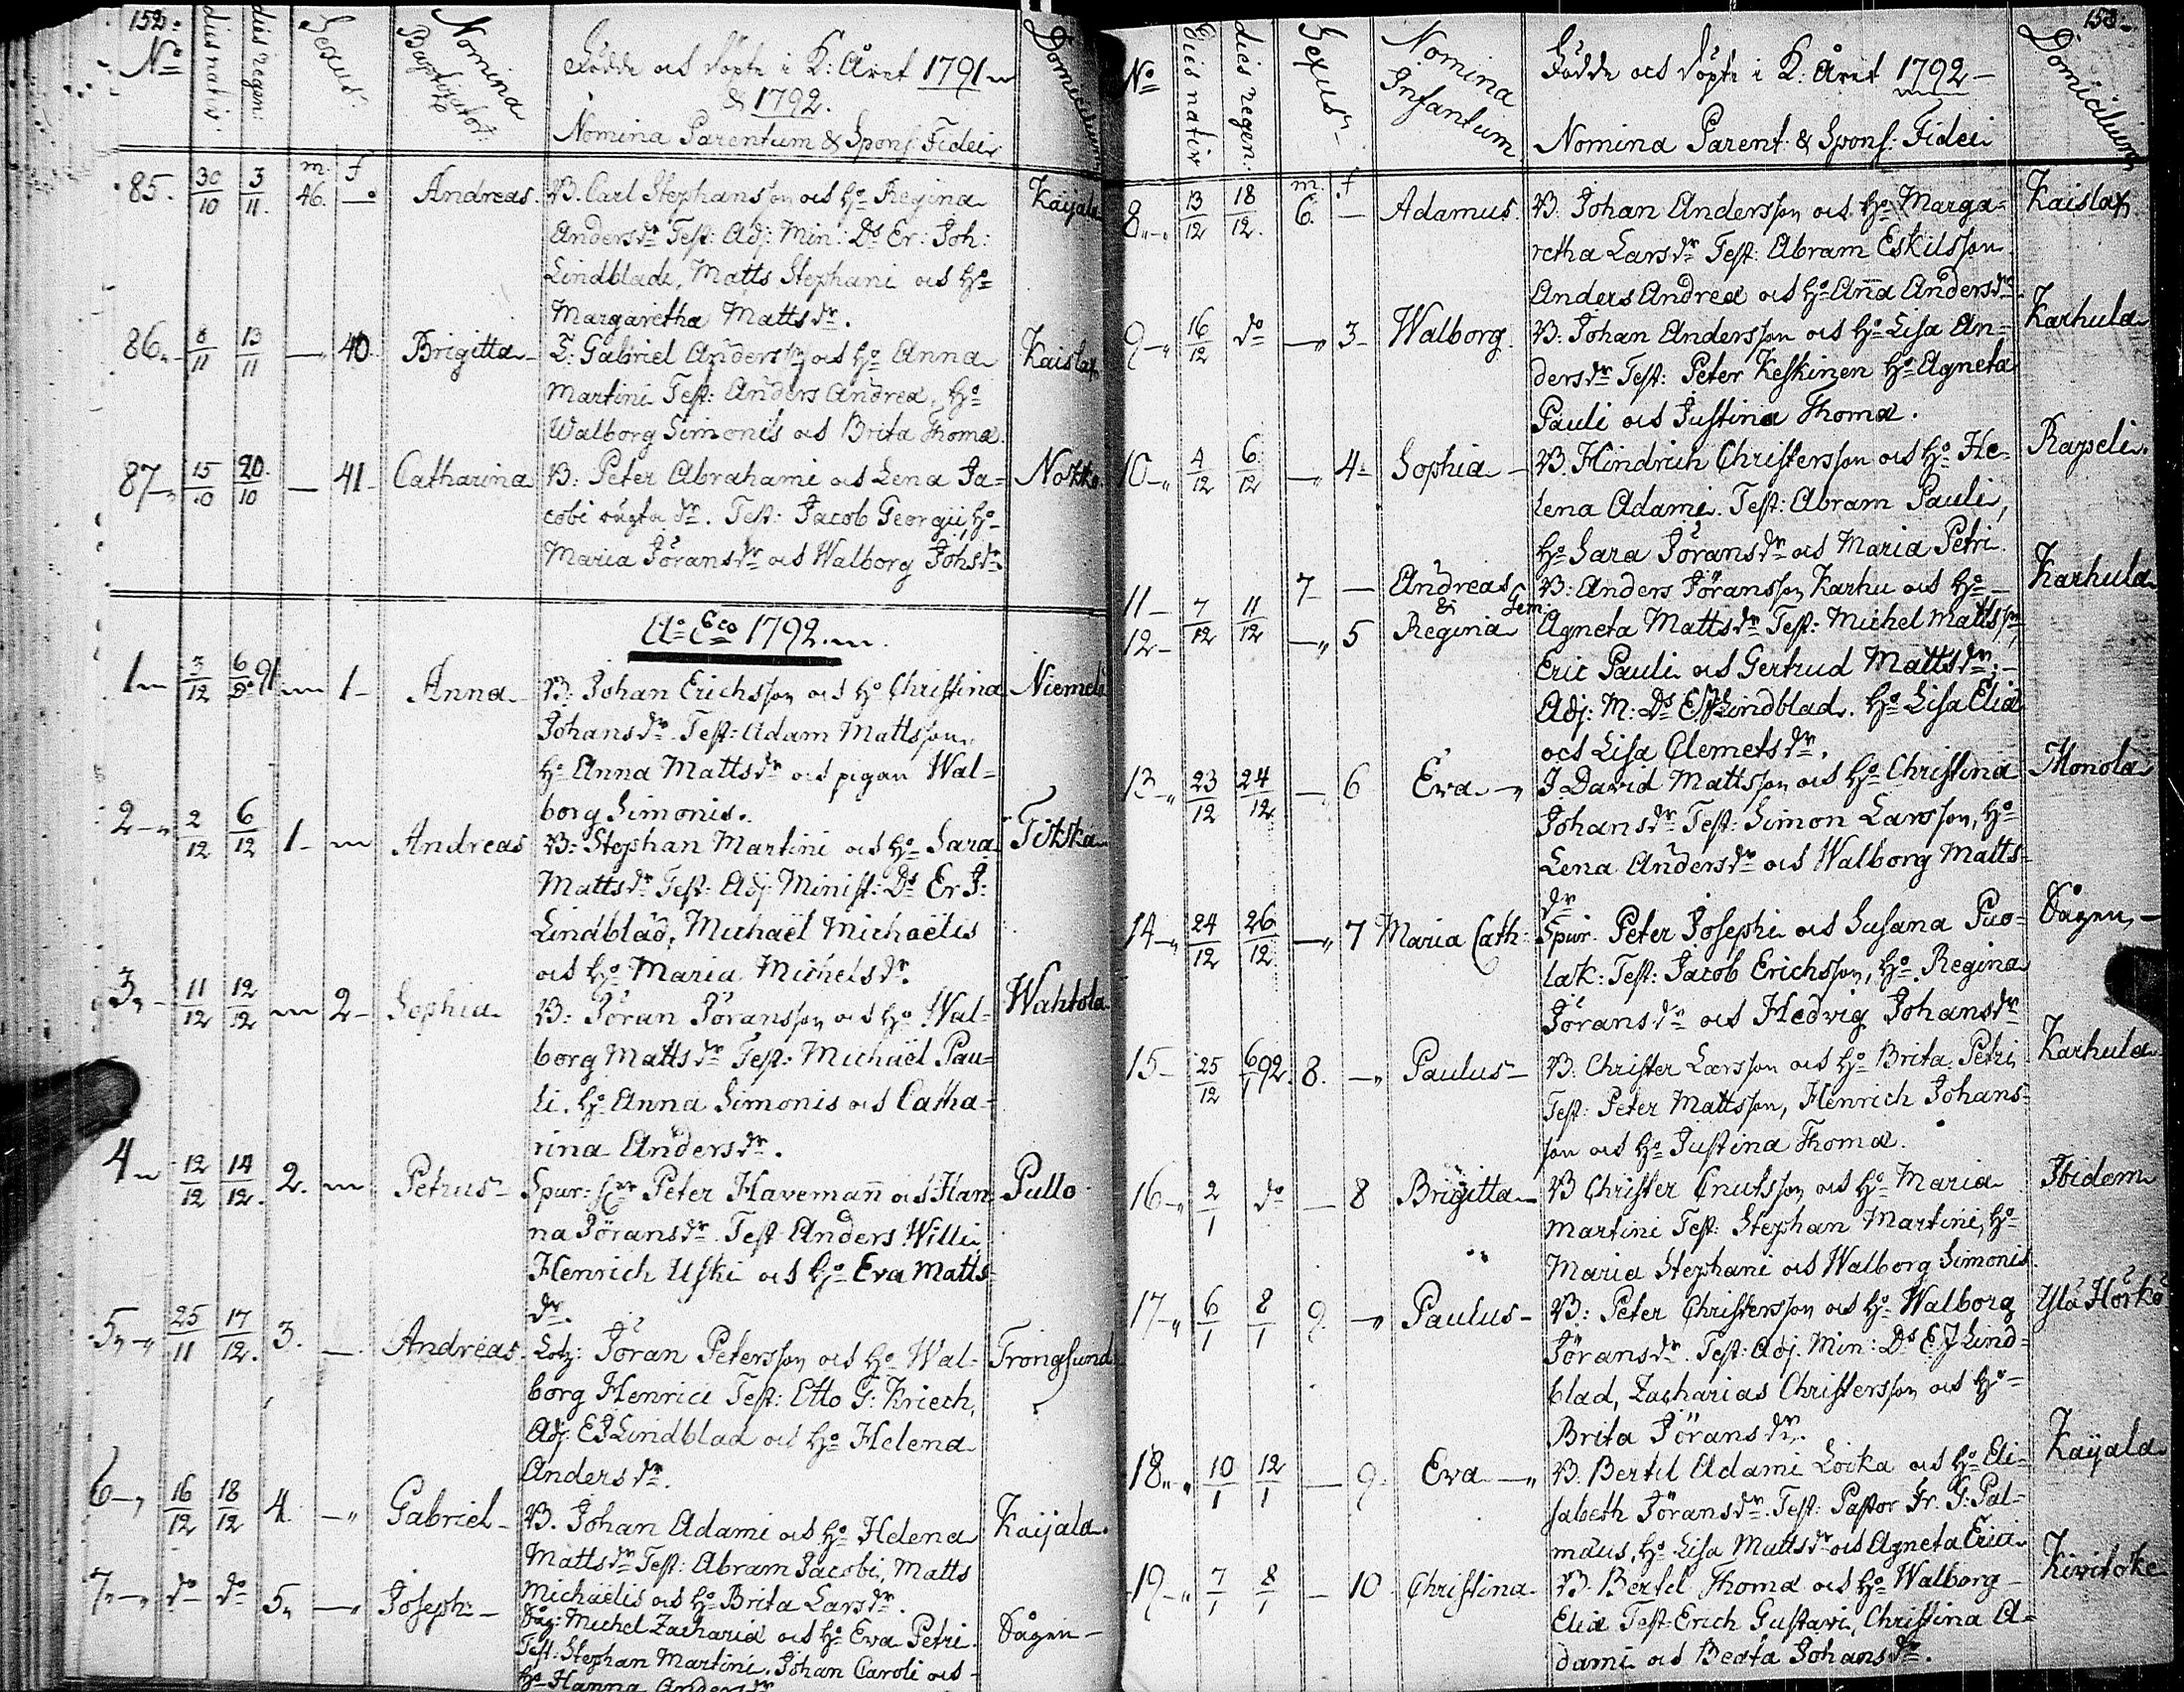 152.
No
dies nativ:
dies regen:
Sexus
Nomina Baptizator:
Födde och döpte i K: Året 1791
& 1792.
Nomina Parentum & Spons: Fidei
Domicilium
85. 30/10 3/11 m. 46. f — Andreas. B. Carl Stephansson och Ho Regina Kaijala
Andersdr Test: Adj: Min: Ds Er: Joh:
Lindblade, Matts Stephani och Ho
Margaretha Mattsdr.
86 8/11 13/11 — 40 Brigitta T: Gabriel Andersson och Ho Anna Kaislax
Martini Test: Anders Andreæ, Ho
Walborg Simonis och Brita Thomæ.
87 15/10 20/10 — 41 Catharina B: Peter Abrahami och Lena Ja= Nokka
cobi dr. Test: Jacob Georgii, Ho
Maria Göransdr och Walborg Johsdr
Ao Eco 1792.
1 3/12 6/Do 91 1 Anna B: Johan Erichsson och Ho Christina Niemelä
Johansdr. Test: Adam Mattsson,
Ho Anna Mattsdr och pigan Wal=
borg Simonis.
2 2/12 6/12 1 Andreas B: Stephan Martini och Ho Sara Titska
Mattsdr Test: Adj: Minist: Ds Er J:
Lindblad, Michaël Michaëlis
och Ho Maria Michelsdr.
3 11/12 12/12 2 Sophia B: Jöran Jöransson och Ho Wal= Wahtola
borg Mattsdr Test: Michaël Pau=
li, Ho Anna Simonis och Catha=
rina Andersdr.
4 12/12 14/12. 2. Petrus Spur: Peter Havemann och Han Pullo
na Jöransdr. Test Anders Willi,
Henrich Uski och Ho Eva Matts=
dr.
5 25/11 17/12. 3. — Andreas. Lotz: Jöran Petersson och Ho Wal= Trongsund
borg Henrici Test: Otto G: Kriech,
Adj. EJ Lindblad och Ho Helena
Andersdr.
6 16/12 18/12 4. — Gabriel B. Johan Adami och Ho Helena Kaijala.
Mattsdr Test: Abram Jacobi, Matts
Michaëlis och Ho Brita Larsdr.
7 do do 5 — Joseph Såg: Michel Zachariæ och Ho Eva Petri Sågen
Test: Stephan Martini, Johan Caroli och
Ho Hanna Andersdr
153.
No
Dies nativ
dies regen.
Sexus
Nomina Infantium
Födde och döpte i K: Året 1792
Nomina Parent: & Spons: Fidei
Domicilium
8 13/12 18/12. m. 6. f — Adamus B. Johan Andersson och Ho Marga= Kaislax
retha Larsdr Test: Abram Eskilsson
Anders Andreæ och Ho Anna Andersdr
9 16/12 do — 3 Walborg. B: Johan Andersson och Ho Lisa An= Karhula
dersdr Test: Peter Keskinen Ho Agneta
Pauli och Justina Thomæ.
10 4/12 6/12 — 4 Sophia B. Hindrich Christersson och Ho He= Rapeli
lena Adami. Test: Abram Pauli,
Ho Sara Jöransdr och Maria Petri.
11 7/12 11/12 7 — Andreas B: Anders Jöransson Karhu och Ho Karhula
& Gem:
12 — 5 Regina Agneta Mattsdr Test: Michel Mattsson
Eric Pauli och Gertrud Mattsdr.
Adj: M: Ds EJ Lindblad. Ho Lisa Eliæ
och Lisa Clemetsdr.
13 23/12 24/12 — 6 Eva J David Mattsson och Ho Christina Monola
Johansdr Test: Simon Larsson, Ho
Lena Andersdr och Walborg Matts=
dr
14 24/12 26/12 — 7 Maria Cath: Spur. Peter Josephi och Susana Puo= Sågen,
lak: Test: Jacob Erichsson, Ho Regina
Jöransdr och Hedvig Johansdr
15 25/12 6/1 92. 8. — Paulus B. Christer Larsson och Ho Brita Petri Karhula
Test: Peter Mattsson, Henrich Johans=
son och Ho Justina Thomæ.
16 2/1 do — 8 Brigitta B Christer Cnutsson och Ho Maria Ibidem
Martini Test: Stephan Martini, Ho
Maria Stephani och Walborg Simonis.
17 6/1 8/1 9 — Paulus B: Peter Christersson och Ho Walborg Ylä Hörkö
Jöransdr. Test: Adj. Min: Ds EJ Lind=
blad, Zacharias Christersson och Ho
Brita Jöransdr.
18 10/1 12/1 — 9 Eva B. Bertil Adami Loika och Ho Eli= Kaijala
sabeth Jöransdr. Test: Pastor Fr. G: Pal=
mæus, Ho Lisa Mattsdr och Agneta Erici
19 7/1 8/1 — 10 Christina B. Bertel Thomæ och Ho Walborg Kivitoke
Eliæ Test: Erich Gustavi, Christina A=
dami och Beata Johansdr.